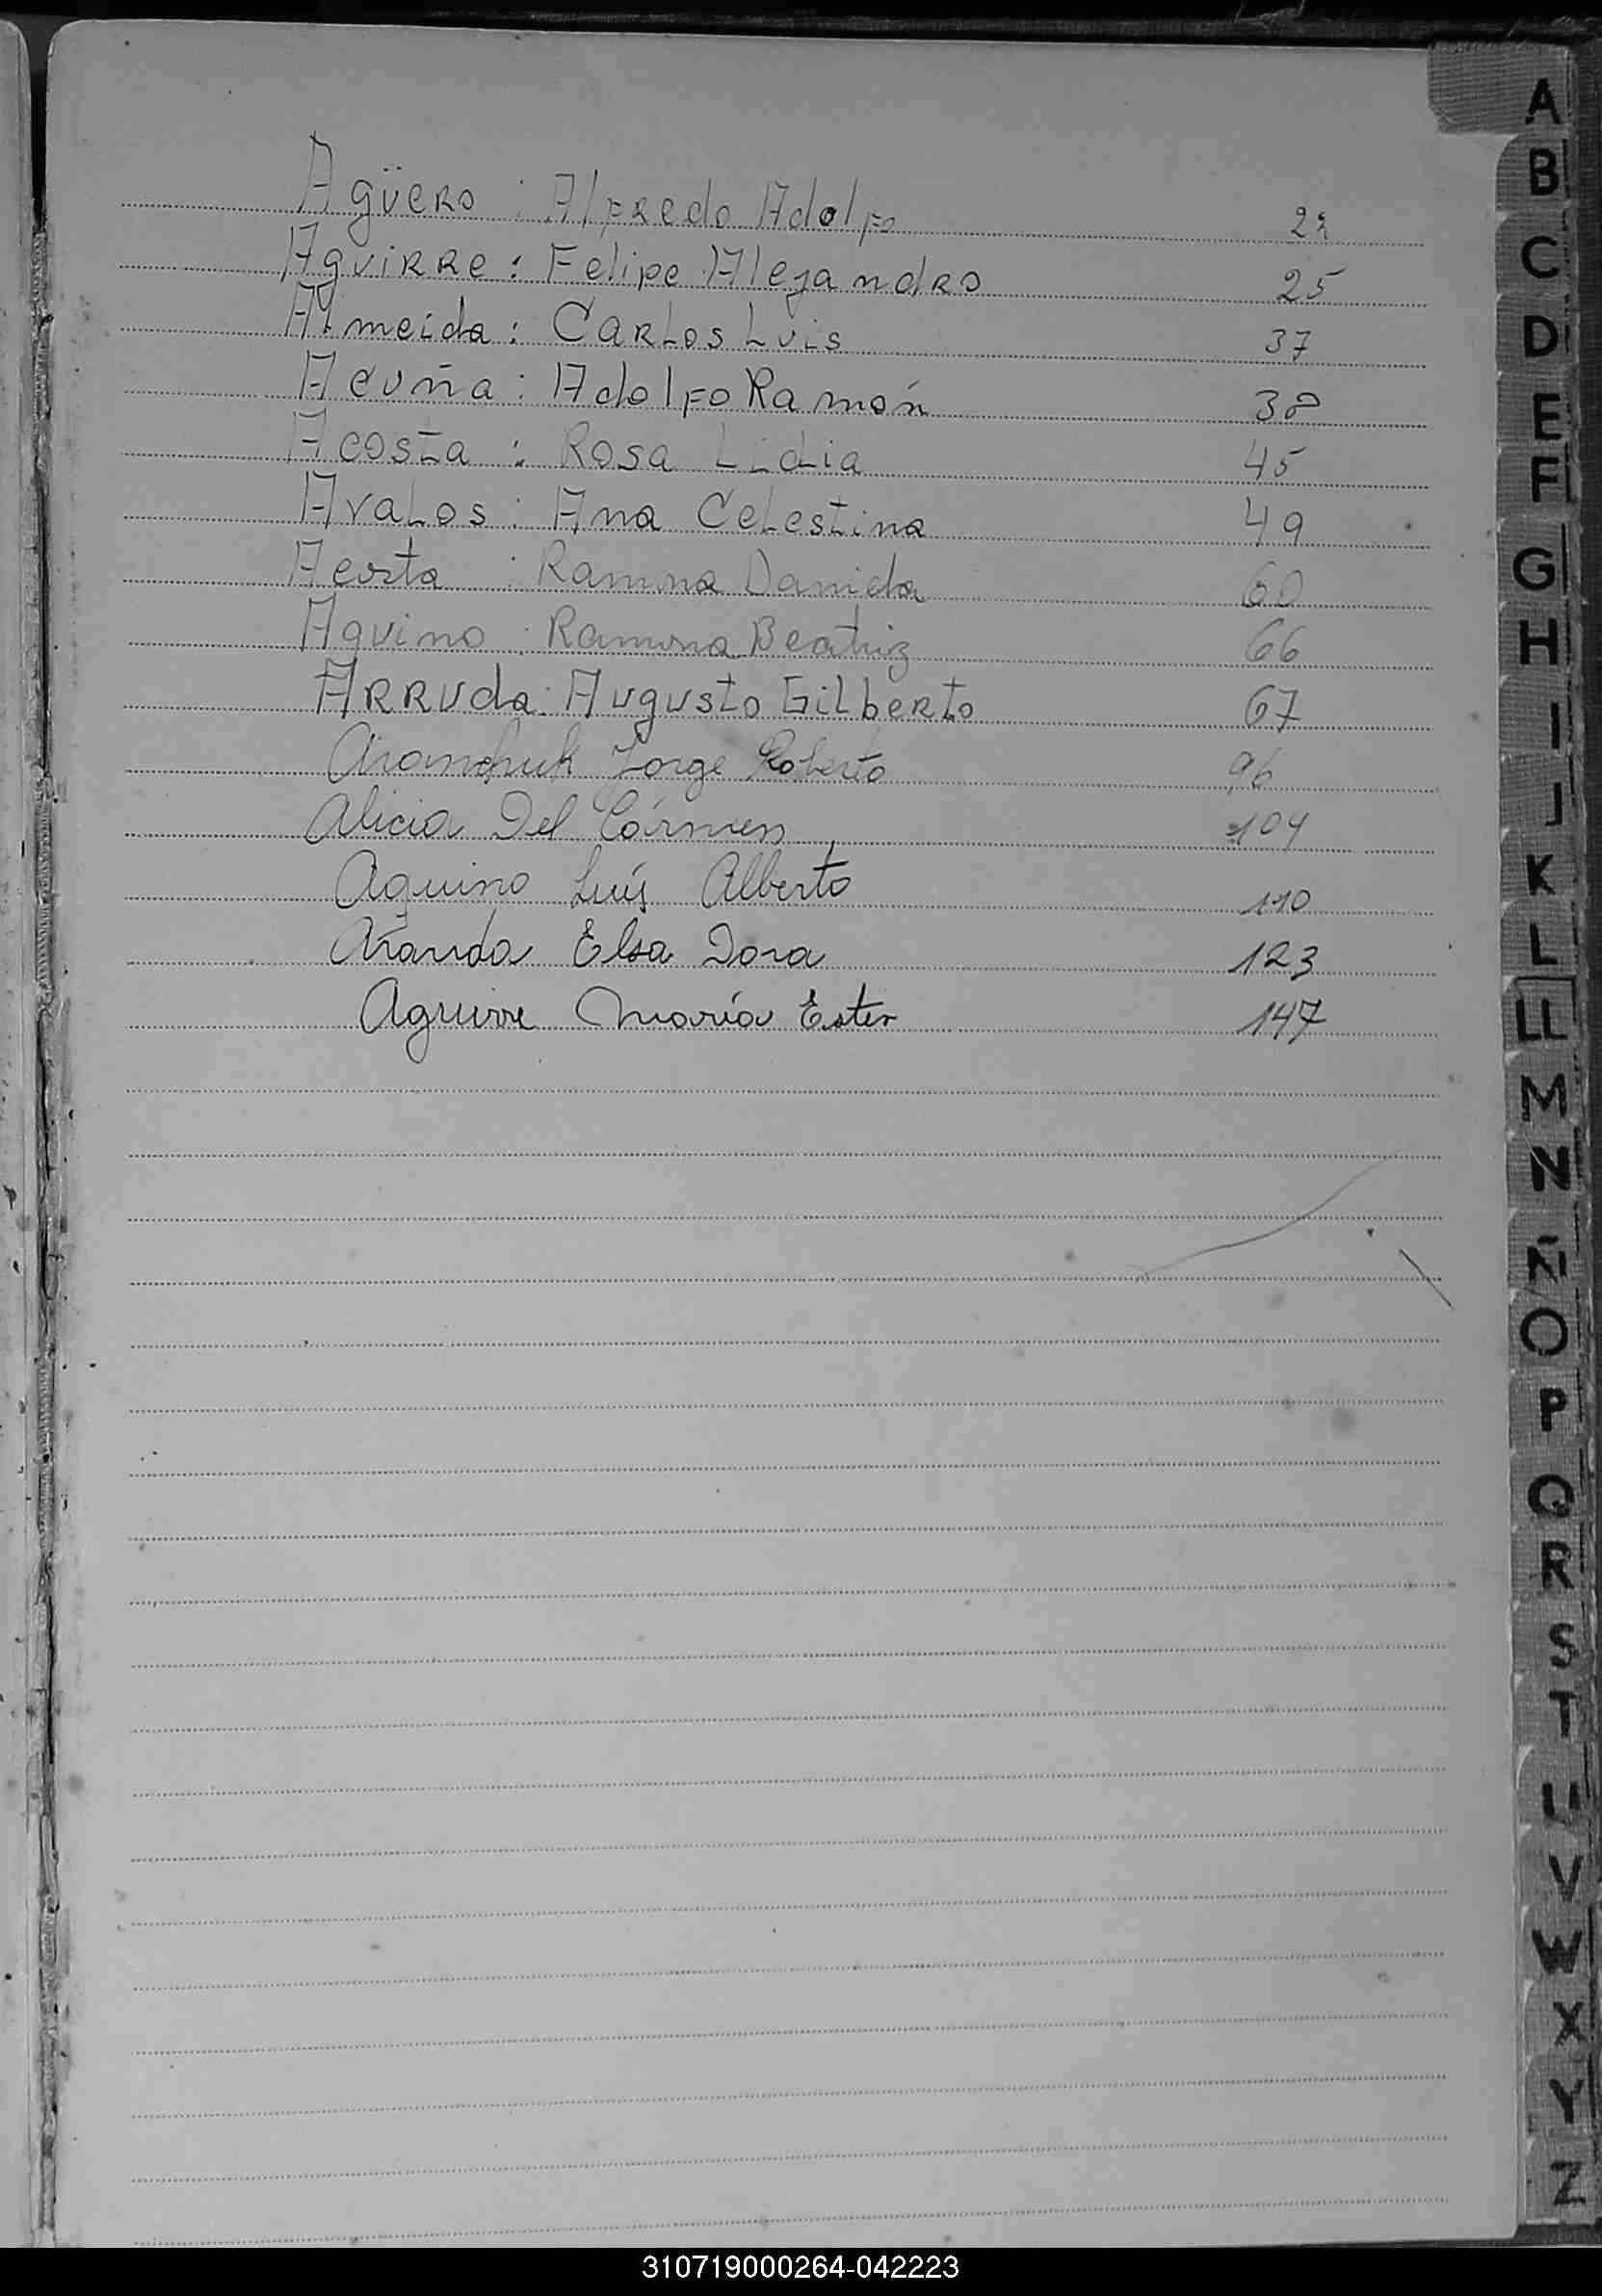 Agüero : Alfredo Adolfo 22
Aguirre : Felipe Alejandro 25
Almeida : Carlos Luis 37
Acuña : Adolfo Ramón 38
Acosta : Rosa Lidia 45
Avalos : Ana Celestina 49
Acosta : Ramona Daniela 60
Aquino : Ramona Beatriz 66
Arruda : Augusto Gilberto 67
Aranchuk Jorge Roberto 96
Alicia Del Cármen 104
Aquino Luis Alberto 110
Aranda Elsa Dora 123
Aguirre María Ester 147
A
B
C
D
E
F
G
H
I
J
K
L
LL
M
N
Ñ
O
P
Q
R
S
T
U
V
W
X
Y
Z
310719000264-042223